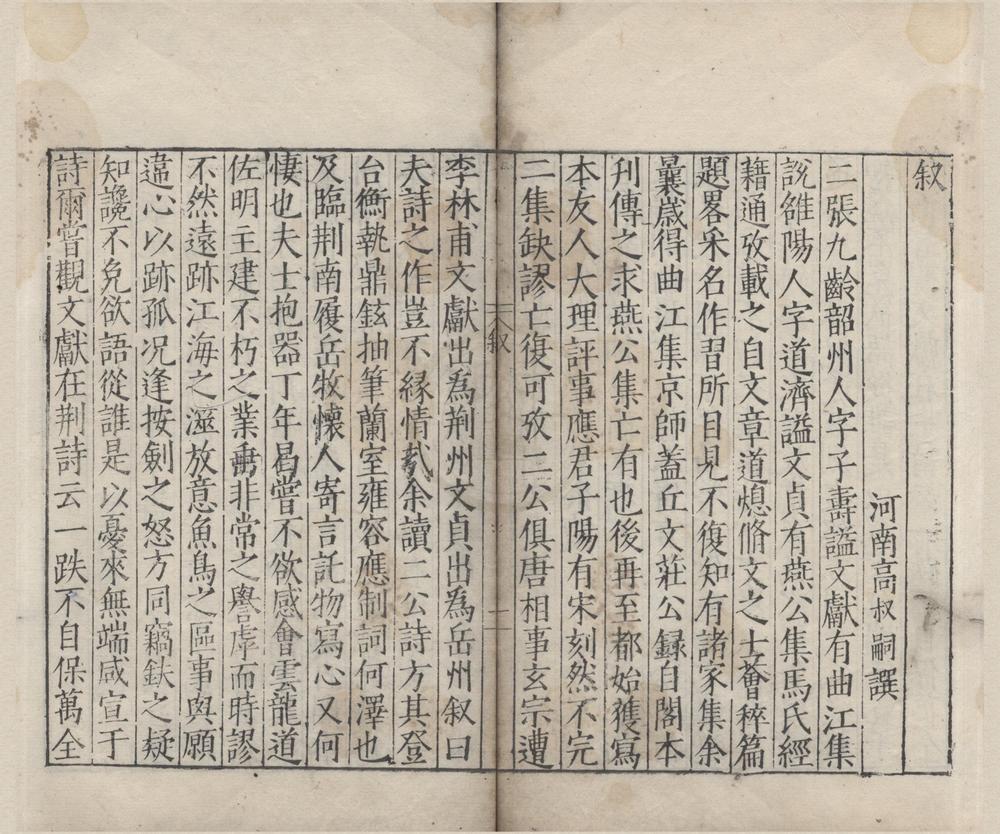 叙
河南高叔嗣譔
二張九齡韶州人字子壽謚文獻有曲江集
說雒陽人字道濟謚文貞有燕公集馬氏經
籍通攷載之自文章道熄脩文之士薈稡篇
題畧采名作習所目見不復知有諸家集余
曩歲得曲江集京師蓋丘文莊公録自閣本
刋傳之求燕公集亡有也後再至都始獲寫
本友人大理評事應君子陽有宋刻然不完
二集缺謬亡復可攷二公俱唐相事玄宗遭
叙
一
李林甫文獻出為荆州文貞出為岳州叙曰
夫詩之作豈不縁情哉余讀二公詩方其登
台衡執鼎鉉抽筆蘭室雍容應制詞何澤也
及臨荆南履岳牧懷人寄言託物寫心又何
悽也夫士抱器丁年曷嘗不欲感會雲龍道
佐明主建不朽之業垂非常之譽虖而時謬
不然遠跡江海之滋放意魚鳥之區事與願
違心以跡孤况逢按劍之怒方同竊鈇之疑
知讒不免欲語從誰是以憂來無端咸宣于
詩爾嘗觀文獻在荆詩云一跌不自保萬全